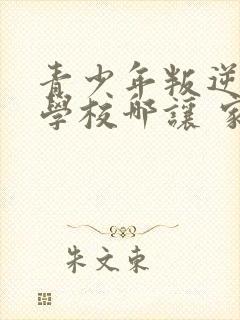 青少年叛逆
學校那讓 家
朱文東